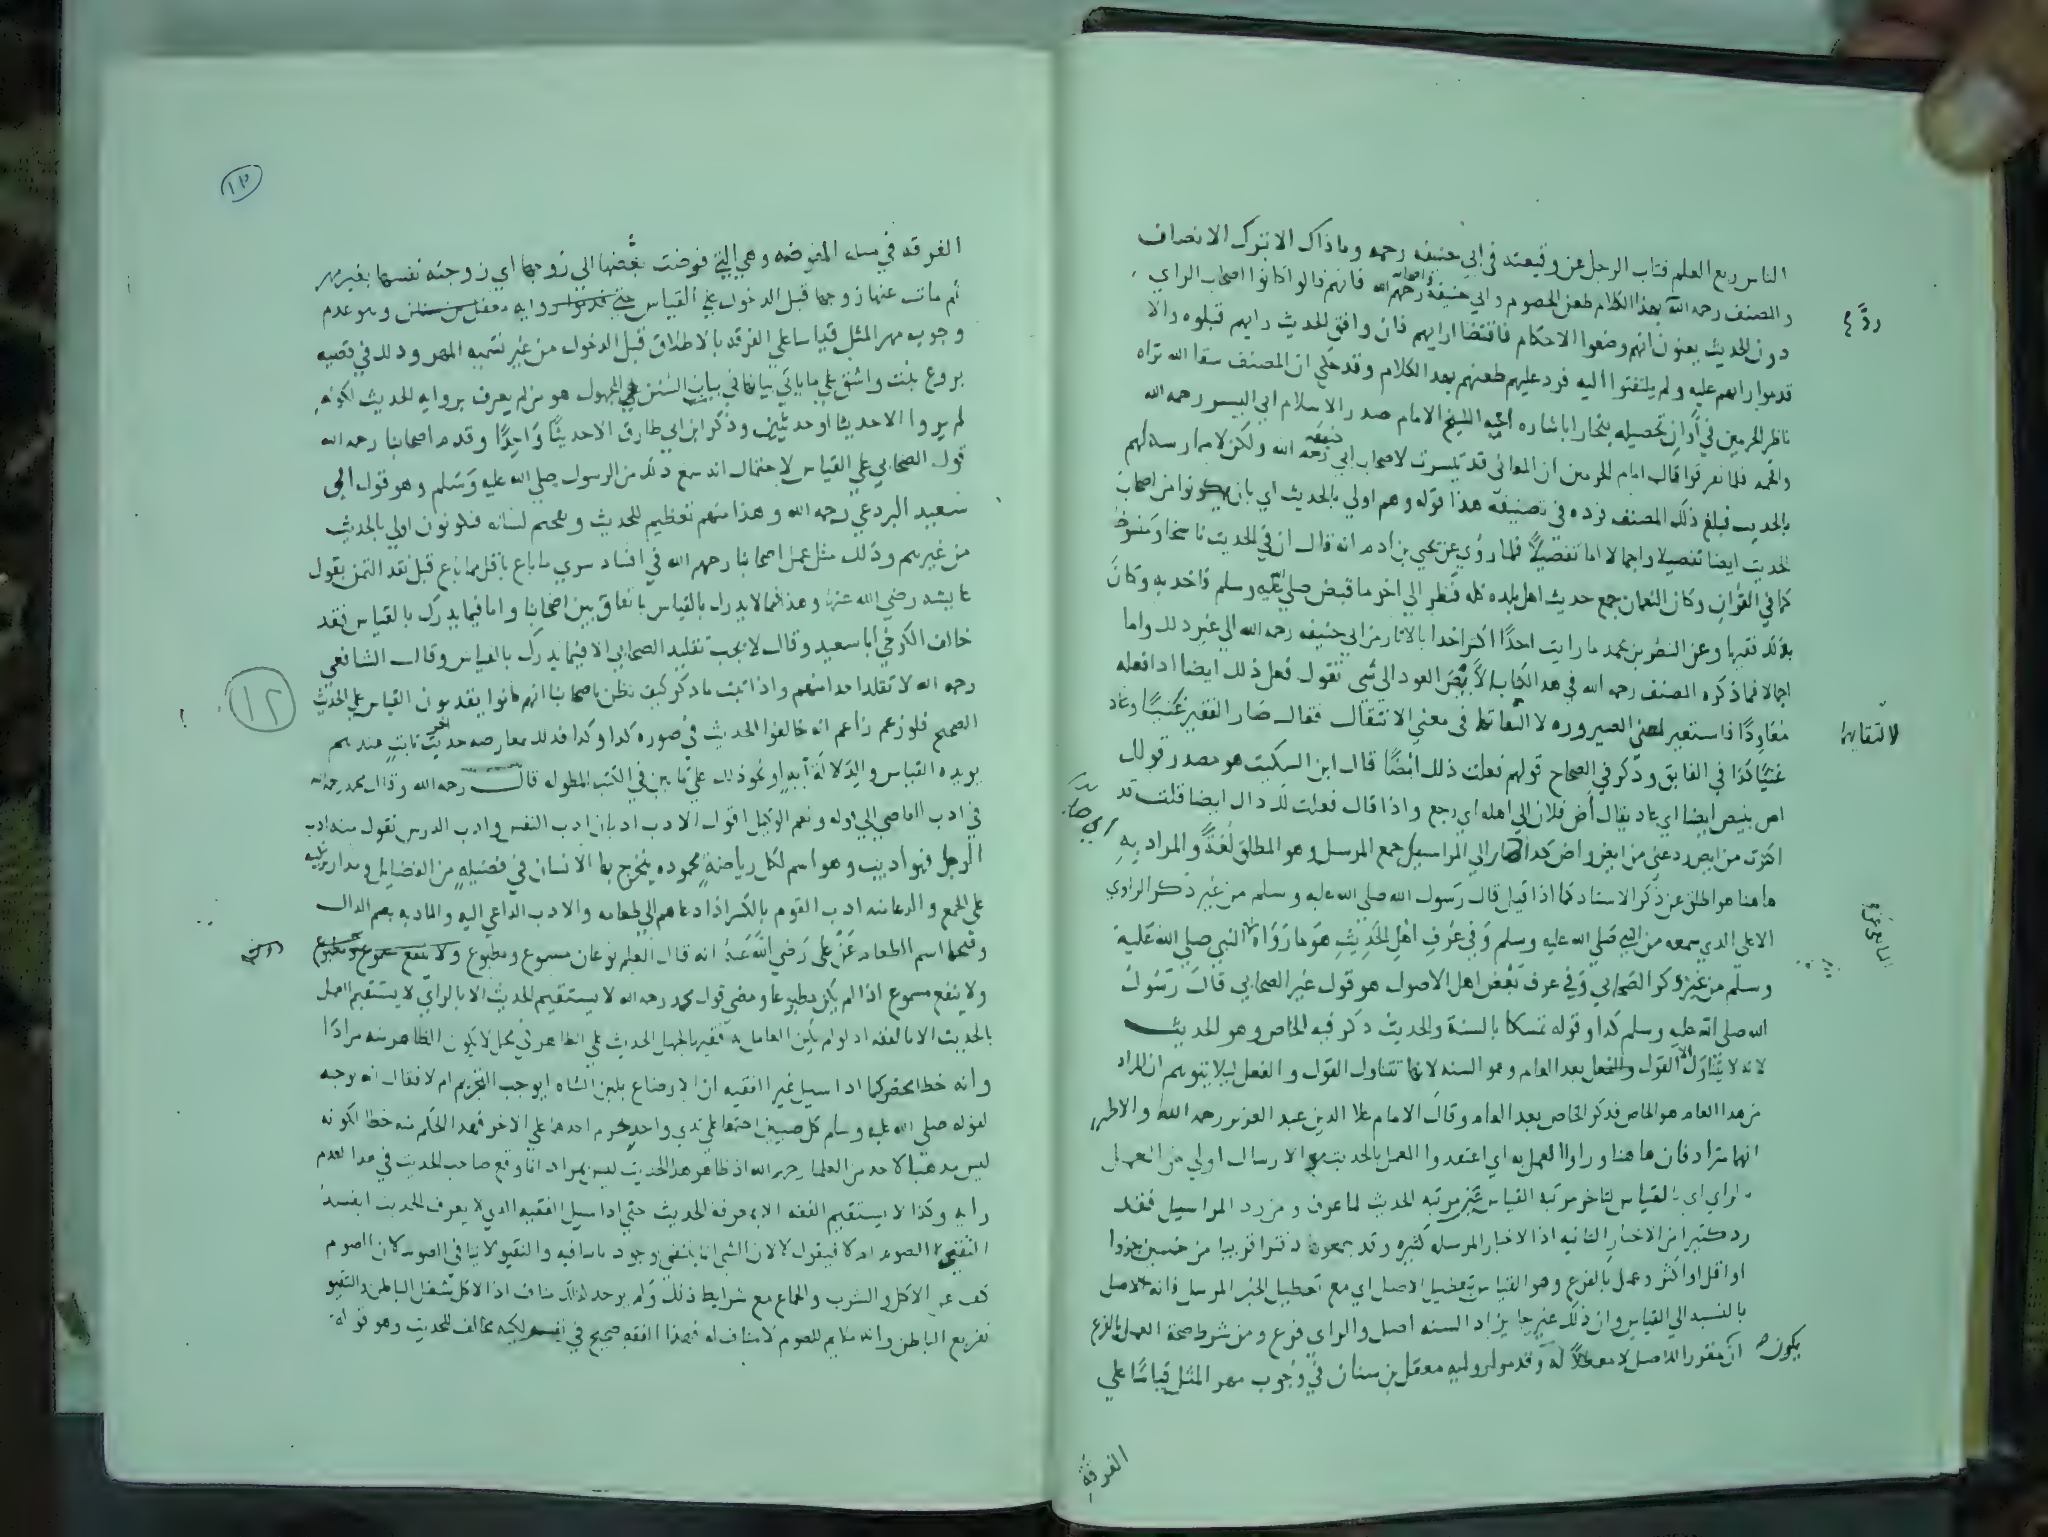 الناس ربع العلم فتاب الرجل عن وقيعته في ابي حنيفه رحمه وما ذاك الا بترك الانصاف
والمصنف رحمه الله بهذا الكلام طعن الخصوم وابي حنيفة واصحابه رحمهم الله فانهم قالوا كانوا اصحاب الراي
دون الحديث يعنون انهم وضعوا الاحكام فاقتضا ارايهم فان وافق الحديث رايهم قبلوه والا
قدموا رايهم عليه ولم يلتفتوا اليه فرد عليهم طعنهم بهذا الكلام وقد حكي ان المصنف سقا الله ثراه
ناظر الحرمين في اوان تحصيله ببخارا باشاره اخيه الشيخ الامام صدر الاسلام ابي اليسر رحمه الله
والحمه فلما تفرقوا قال امام الحرمين ان المعاني قد تيسرت لاصحاب ابي حنيفه رحمه الله ولكن لا ممارسة لهم
بالحديث فبلغ ذلك المصنف فرده في تصنيفه هذا قوله وهم اولي بالحديث اي بان يكونوا من اصحاب
الحديث ايضا تفصيلا واجمالا اما تفصيلاً فلما روي عن يحيي بن ادم انه قال ان في الحديث ناسخا ومنسوخا
كما في القران وكان النعمان جمع حديث اهل بلده كله فنظر الي اخر ما قبض صلي الله عليه وسلم فاخذ به وكان
بذلك فقيها وعن النضر بن محمد ما رايت احدًا اكثر اخدا بالاثار من ابي حنيفه رحمه الله الي غير ذلك واما
اجمالا فما ذكره المصنف رحمه الله في هدا الكتاب الأيض العود الى شي تقول فعل ذلك ايضا اذا فعله
معاودًا فاستعير لمعني الصيروره لالتقائهما في معني الانتقال فقال صار الفقير غنيًا وعاد
غنيًا كذا في الفايق وذكر في الصحاح قولهم فعلت ذلك ايضًا قال ابن السكيت هو مصدر قولك
اض يئيض ايضا اي عاد يقال أض فلان الي اهله اي رجع واذا قال فعلت لك ذاك ايضا قلت قد
اكثرت من ايض ودعني من ايض واض كدا اي صار الي المراسيل جمع المرسل وهو المطلق لغةً والمراد به
هاهنا هو المطلق عن ذكر الاسناد كما اذا قيل قال رسول الله صلي الله عليه وسلم من غير ذكر الراوي
الاعلي الدي سمعه من النبي صلي الله عليه وسلم وفي عرف اهل الحديث هو ما رواه النبي صلي الله عليه
وسلم من غير ذكر الصحابي وفي عرف بعض اهل الاصول هو قول غير الصحابي قال رسول
الله صلي الله عليه وسلم كدا وقوله تمسكا بالسنة والحديث ذكر فيه الخاص وهو الحديث
لانه لا يتناول الا القول والفعل بعد العام وهو السنه لانها تتناول القول والفعل ليلا يتوهم ان المراد
من هدا العام هو الخاص فدكر الخاص بعد العام وقال الامام علا الدين عبد العزيز رحمه الله والاظهر
انهما مترادفان هاهنا وراوا العمل به اي اعتقدوا العمل بالحديث مع الارسال اولي من العمل
بالراي اي بالقياس لتاخر مرتبه القياس عن مرتبه الحديث لما عرف ومن رد المراسيل فقد
رد كثيرا من الاخبار الثانيه اذ الاخبار المرسله كثيره وقد جمعوا دفترا قريبا من خمسين جزوا
او اقل او اكثر وعمل بالفرع وهو القياس بتعطيل الاصل اي مع تعطيل الخبر المرسل فانه الاصل
بالنسبه الي القياس وان ذلك غير جايز اد السنه اصل والراي فرع ومن شرط صحة العمل بالفرع
ان يكون مقررا للاصل لا معطلاً له وقدموا رواية معقل بن سنان في وجوب مهر المثل قياسًا علي
ردّ ع
لالتقائهما
يكون
الفرقة
١٣
الفرقه في مسله المفوضه وهي التي فوضت بضعها الي زوجها اي زوجته نفسها بغير مهر
ثم مات عنها زوجها قبل الدخول علي القياس وهو عدم
وجوب مهر المثل قياسا علي الفرقه بالاطلاق قبل الدخول من غير تسميه المهر ودلك في قصيه
بروع بنت واشق علي ما ياتي بيانها في بيان السنن المجهول هو من لم يعرف بروايه الحديث لكونه
لم يروا الا حديثا او حديثين وذكر ابن ابي طارق الا حديثًا واحدًا وقدم اصحابنا رحمه الله
قول الصحابي علي القياس لاحتمال انه سمع ذلك من الرسول صلي الله عليه وسلم وهو قول ابي
سعيد البردعي رحمه الله وهذا منهم تعظيم للحديث وفهم لسانه فيكونون اولي بالحديث
من غيرهم وذلك مثل عمل اصحابنا رحمهم الله في افساد سري ما باع باقل مما باع قبل نقد الثمن بقول
عايشه رضي الله عنها وهذا فيما لا يدرك بالقياس باتفاق بين اصحابنا واما فيما يدرك بالقياس فقد
خالف الكرخي ابا سعيد وقال لا يجب تقليد الصحابي الا فيما لا يدرك بالقياس وقال الشافعي
رحمه الله لا تقلد احد منهم واذا ثبت ما ذكر كيف تظن باصحابنا انهم كانوا يقدمون القياس علي الحديث
الصحيح فلو زعم زاعم انه خالفوا الحديث في صوره كدا وكدا فدلك معارضه حديث اخر ثابت عندهم
يويده القياس والدلالة آيه او نحو ذلك علي ما بين في الكتب المطوله قال رحمه الله وقال محمد رحمه الله
في ادب القاضي الي اوله ونعم الوكيل اقول الادب ادبان ادب النفس وادب الدرس تقول منه ادب
الرجل فهو اديب وهو اسم لكل رياضةٍ محموده يتخرج بها الانسان في فضيله من الفضايل ومدار تركيبه
علي الجمع والدعا منه ادب القوم بالكسر اذا دعاهم الي طعامه والادب الداعي اليه والمادبه بضم الدال
وفتحها اسم الطعام عن علي رضي الله عنه انه قال العلم نوعان مسموع ومطبوع ولا ينفع مسموع
ولا ينفع مسموع اذا لم يكن مطبوعا ومضي قول محمد رحمه الله لا يستقيم الحديث الا بالراي لا يستقيم العمل
بالحديث الا بالفقه اد لو لم يكن العامل به فقيها لجهل الحديث علي الظاهر في محل لا يكون الظاهر منه مرادًا
وانه خطا محض كما اذا سيل غير الفقيه ان الارضاع بلبن الشاه ايوجب التحريم ام لا فقال انه يوجبه
لقوله صلي الله عليه وسلم كل صبيين اجتمعا علي ثدي واحد حرم احدهما علي الاخر فهدا الحكم منه خطا لكونه
ليس مدهبا لاحد من العلما رحمهم الله اذ ظاهر هدا الحديث ليس بمراد انما وقع صاحب الحديث في هدا لعدم
رايه وكذا لا يستقيم الفقه الا بمعرفه الحديث حتي اذا سيل الفقيه الدي لا يعرف الحديث ايفسد
القي الصوم ام لا فيقول لا لان الشي انما ينتفي وجود ما ينافيه والقي لا ينافي الصوم لان الصوم
كف عن الاكل والشرب والجماع مع شرايط ذلك ولم يوجد لذلك مناف اذ الاكل شغل الباطن والقي
تفريغ الباطن وانه ملايم للصوم لا مناف له فهذا الفقه صحيح في نفسه لكنه مخالف للحديث وهو قوله
١٢